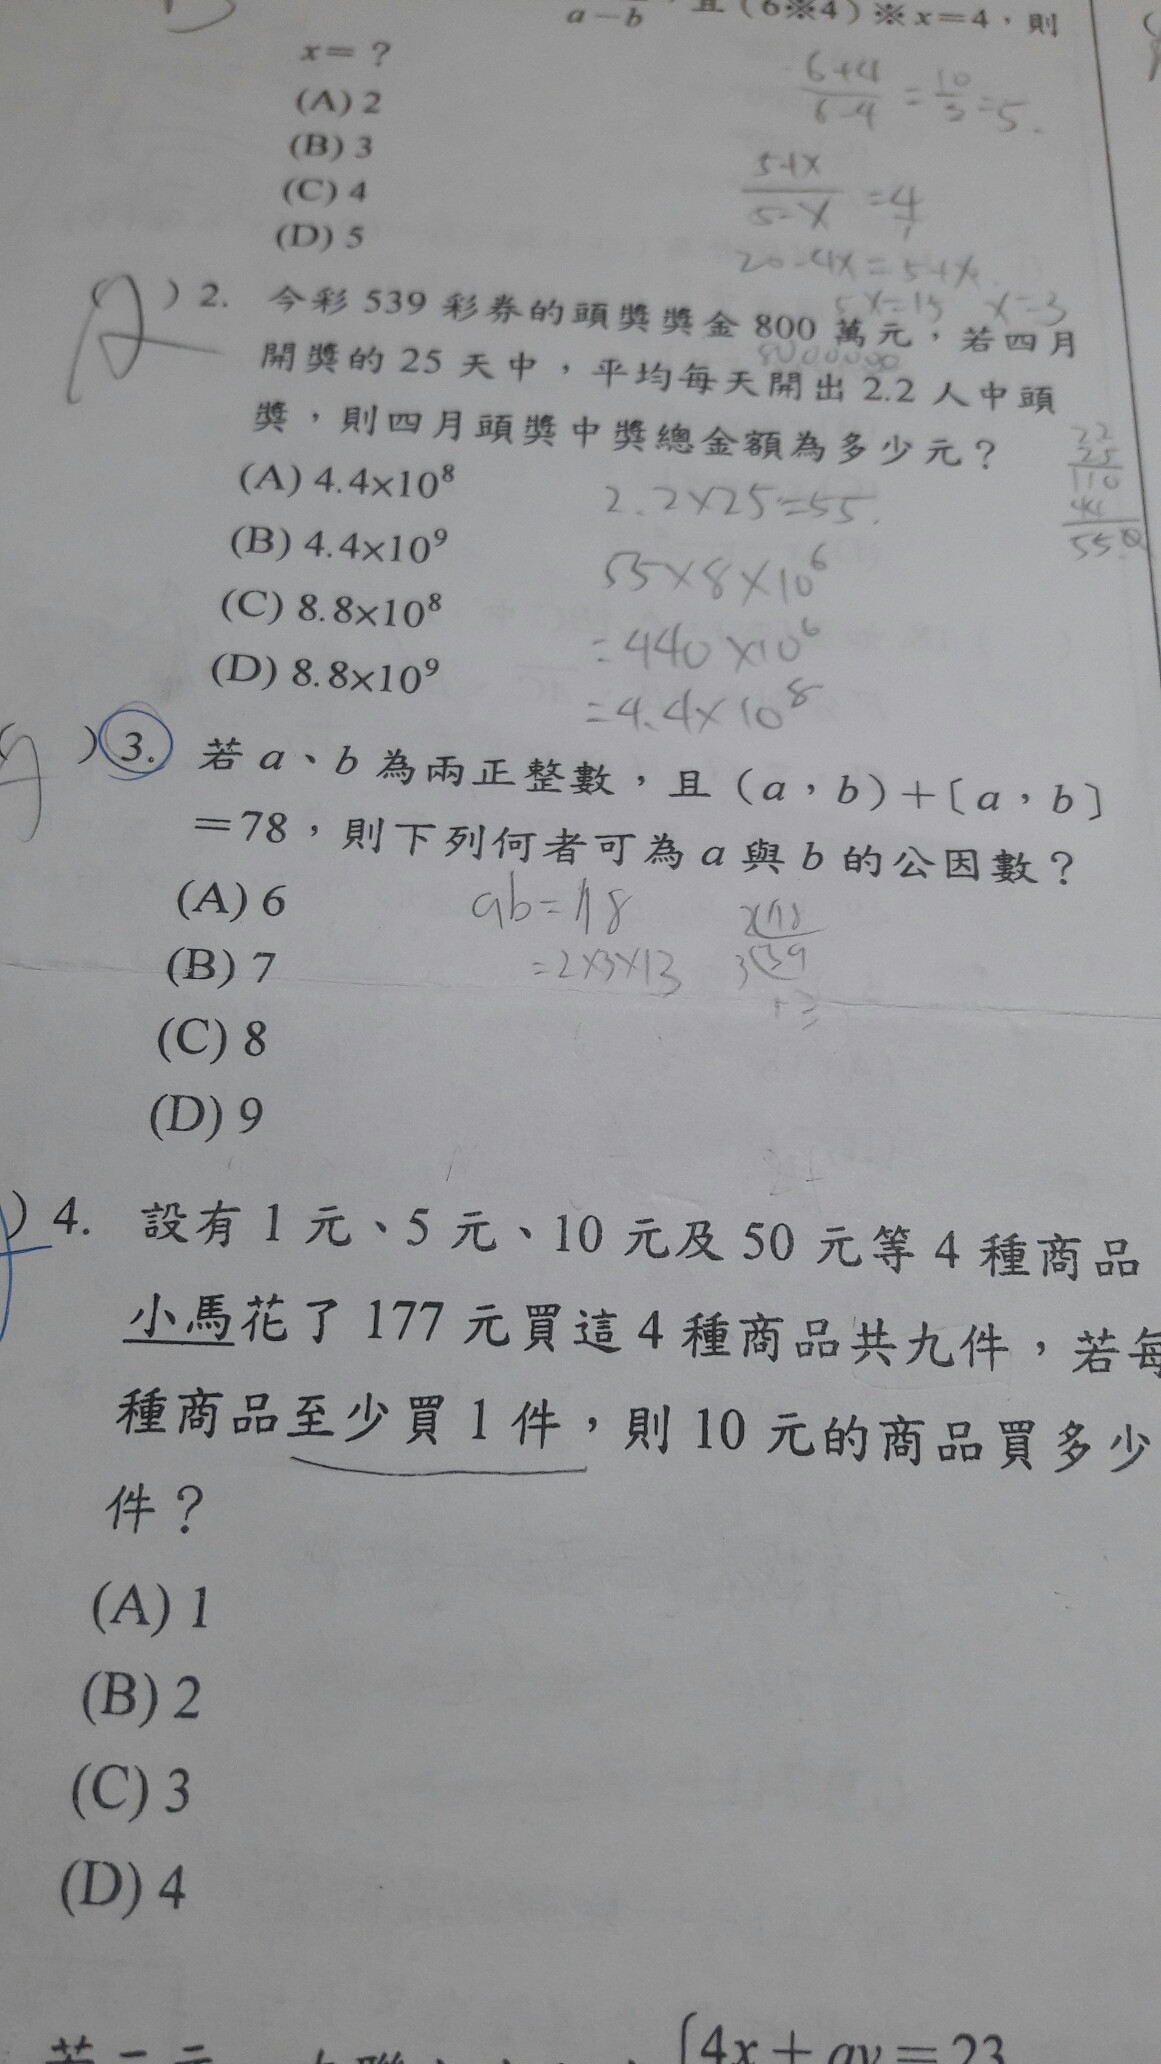 a－b，且（6※4）※x＝4，則
x＝？
(A) 2
(B) 3
(C) 4
(D) 5
6+4
6-4
=
10
2
=5.
5+x
5-x
=
4
1
20-4x=5+x
5x=15 x=3
A
) 2. 今彩 539 彩券的頭獎獎金 800 萬元，若四月
8000000
開獎的 25 天中，平均每天開出 2.2 人中頭
獎，則四月頭獎中獎總金額為多少元？
(A) 4.4×10⁸
(B) 4.4×10⁹
(C) 8.8×10⁸
(D) 8.8×10⁹
2.2×25=55.
22
25
110
44
55.0
55×8×10⁶
=440×10⁶
=4.4×10⁸
) 3. 若 a、b 為兩正整數，且（a，b）＋〔a，b〕
＝78，則下列何者可為 a 與 b 的公因數？
(A) 6
(B) 7
(C) 8
(D) 9
ab=78
=2×3×13
78
3 39
13
) 4. 設有 1 元、5 元、10 元及 50 元等 4 種商品
小馬花了 177 元買這 4 種商品共九件，若每
種商品至少買 1 件，則 10 元的商品買多少
件？
(A) 1
(B) 2
(C) 3
(D) 4
4x＋ay＝23